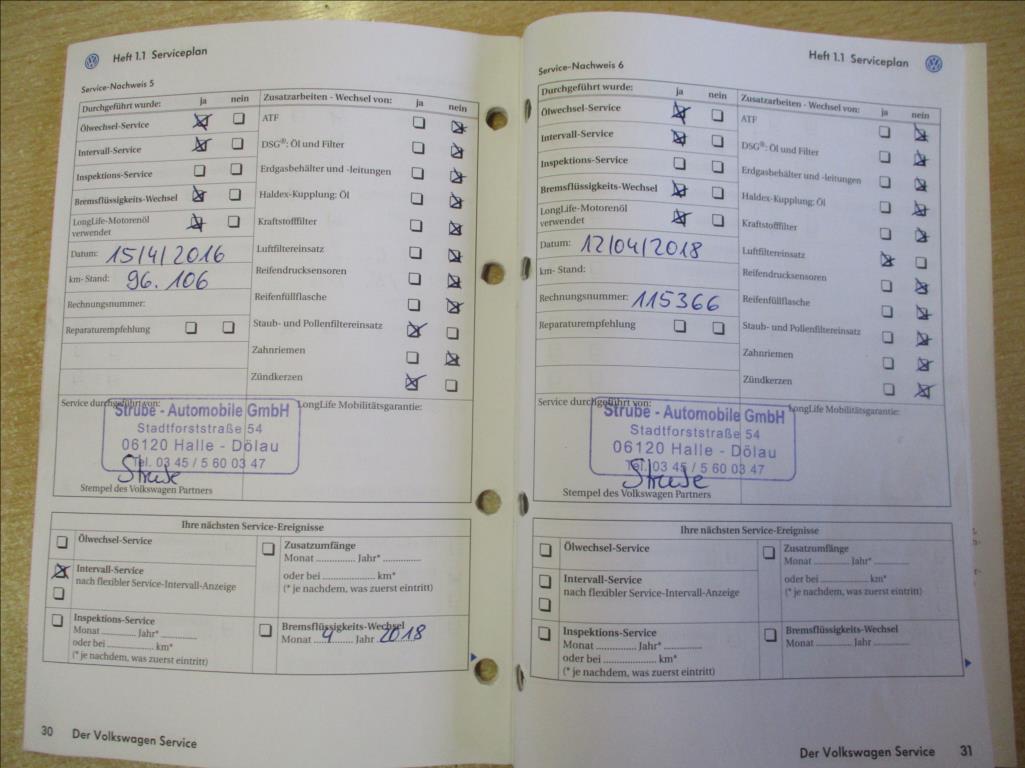 Heft 1.1 Serviceplan
Service-Nachweis 5
Durchgeführt wurde: ja nein
Ölwechsel-Service
Intervall-Service
Inspektions-Service
Bremsflüssigkeits-Wechsel
LongLife-Motorenöl
verwendet
Datum: 15/4/2016
km- Stand: 96.106
Rechnungsnummer:
Reparaturempfehlung
Zusatzarbeiten - Wechsel von: ja nein
ATF
DSG®: Öl und Filter
Erdgasbehälter und -leitungen
Haldex-Kupplung: Öl
Kraftstofffilter
Luftfiltereinsatz
Reifendrucksensoren
Reifenfüllflasche
Staub- und Pollenfiltereinsatz
Zahnriemen
Zündkerzen
Service durchgeführt von:
LongLife Mobilitätsgarantie:
Strube - Automobile GmbH
Stadtforststraße 54
06120 Halle - Dölau
Tel. 03 45 / 5 60 03 47
Strube
Stempel des Volkswagen Partners
Ihre nächsten Service-Ereignisse
Ölwechsel-Service
Intervall-Service
nach flexibler Service-Intervall-Anzeige
Inspektions-Service
Monat ............ Jahr* ............
oder bei ...................... km*
(* je nachdem, was zuerst eintritt)
Zusatzumfänge
Monat ............. Jahr* ............
oder bei .................... km*
(* je nachdem, was zuerst eintritt)
Bremsflüssigkeits-Wechsel
Monat ....4.... Jahr 2018
30 Der Volkswagen Service
Heft 1.1 Serviceplan
Service-Nachweis 6
Durchgeführt wurde: ja nein
Ölwechsel-Service
Intervall-Service
Inspektions-Service
Bremsflüssigkeits-Wechsel
LongLife-Motorenöl
verwendet
Datum: 12/04/2018
km- Stand:
Rechnungsnummer: 115366
Reparaturempfehlung
Zusatzarbeiten - Wechsel von: ja nein
ATF
DSG®: Öl und Filter
Erdgasbehälter und -leitungen
Haldex-Kupplung: Öl
Kraftstofffilter
Luftfiltereinsatz
Reifendrucksensoren
Reifenfüllflasche
Staub- und Pollenfiltereinsatz
Zahnriemen
Zündkerzen
Service durchgeführt von:
LongLife Mobilitätsgarantie:
Strube - Automobile GmbH
Stadtforststraße 54
06120 Halle - Dölau
Tel. 03 45 / 5 60 03 47
Strube
Stempel des Volkswagen Partners
Ihre nächsten Service-Ereignisse
Ölwechsel-Service
Intervall-Service
nach flexibler Service-Intervall-Anzeige
Inspektions-Service
Monat ............. Jahr* ............
oder bei .................... km*
(* je nachdem, was zuerst eintritt)
Zusatzumfänge
Monat ............ Jahr* ............
oder bei .................... km*
(* je nachdem, was zuerst eintritt)
Bremsflüssigkeits-Wechsel
Monat ............ Jahr ............
Der Volkswagen Service 31